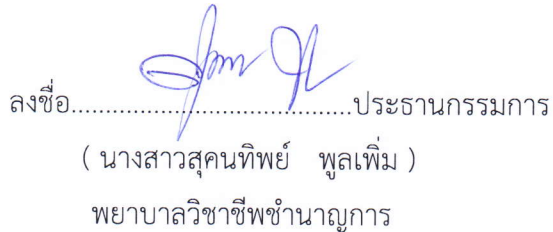 ลงชื่อ....................................ประธานกรรมการ
( นางสาวสุคนทิพย์ พูลเพิ่ม )
พยาบาลวิชาชีพชำนาญการ